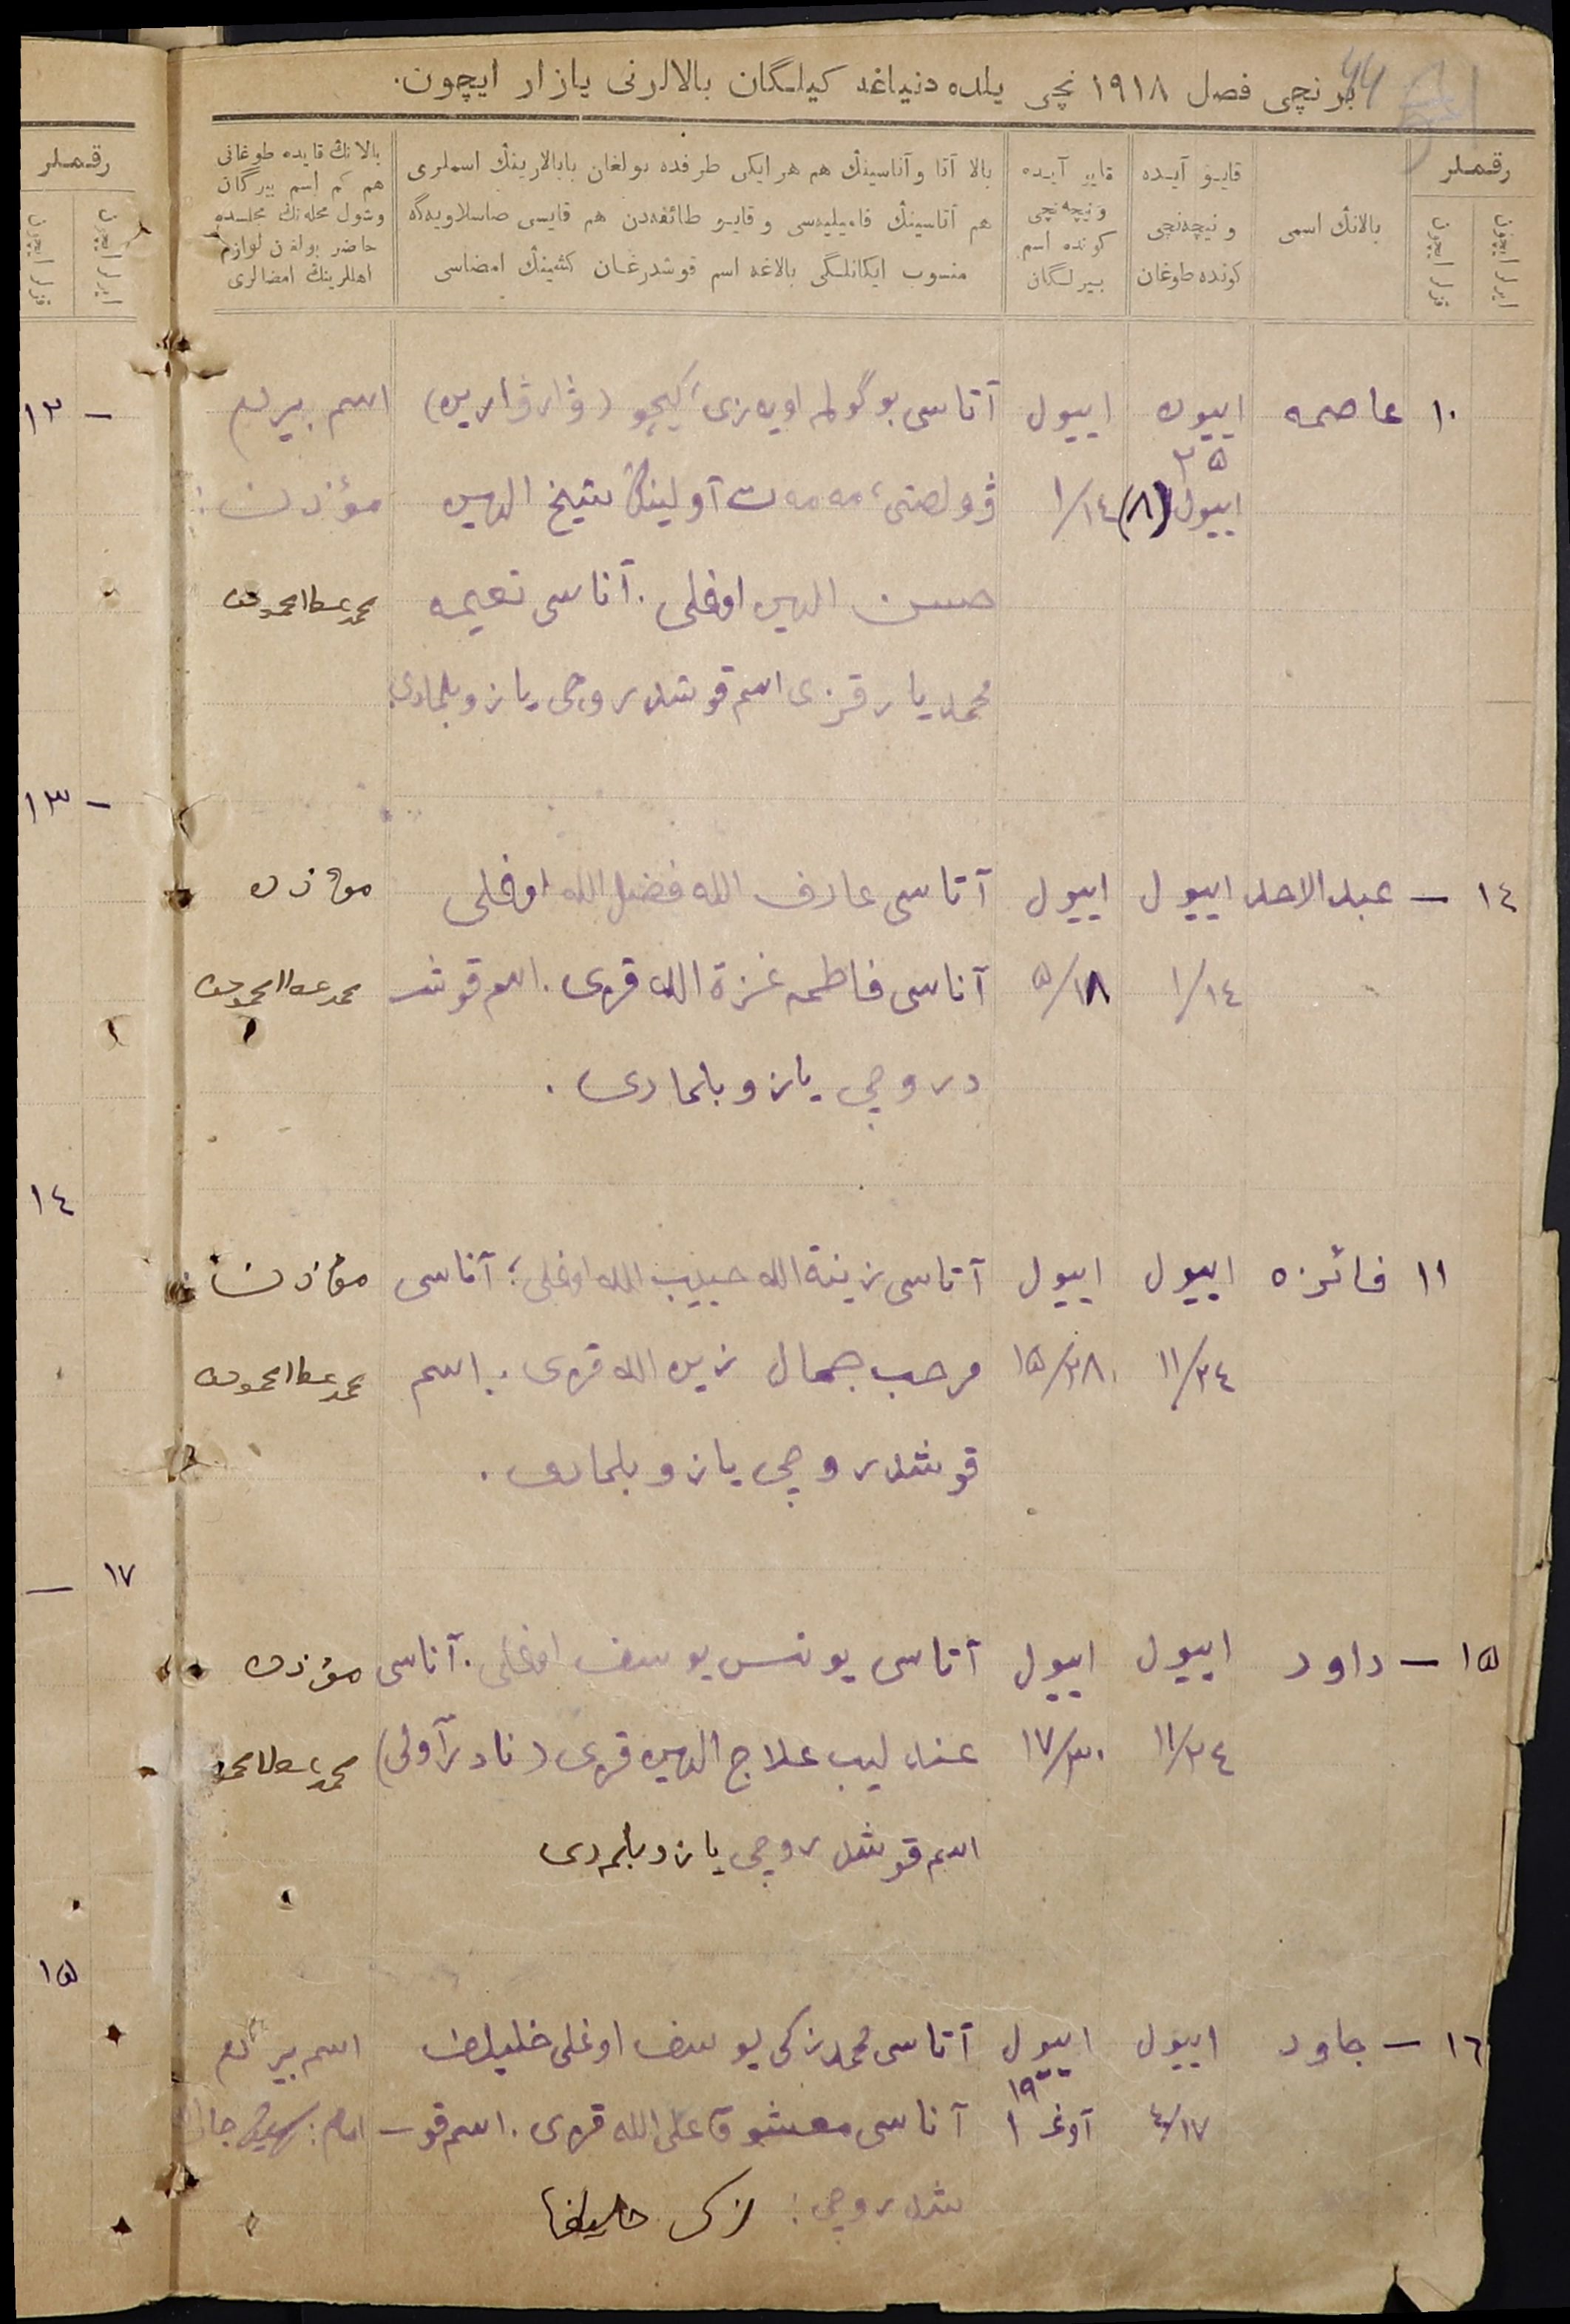 44
برنچی فصل ١٩١٨ نچی یلده دنیاغه کیلگان بالالرنی یازار ایچون.
رقملر
ایرلر ایچون
قزلر ایچون
بالانڭ اسمی
قایو آیده
و نیچه‌نچی
کونده طوغان
قایو آیده
و نیچه‌نچی
کونده اسم
بیرلگان
بالا آتا و آناسینڭ هم هر ایکی طرفده بولغان بابالارینڭ اسملری
هم آتاسینڭ فامیلیه‌سی و قایو طائفه‌دن هم قایسی صاسلاویه‌گه
منسوب ایکانلگی بالاغه اسم قوشدرغان کشینڭ امضاسی
بالانڭ قایده طوغانی
هم کم اسم بیرگان
وشول محله‌نڭ مجلسده
حاضر بولغن لوازم
اهللرینڭ امضالری
رقملر
ایرلر ایچون
قزلر ایچون
١٠ عاصمه
اییون
٢٥
اییول (٨)
اییول
١/١٤
آتاسی بوگولمه اویه‌زی، کیچو (ۋارۋارین)
ۋولصتی، آولینڭ شیخ الدین
حسن الدین اوغلی. آناسی نعیمه
محمدیار قزی اسم قوشدروچی یازو بلمادی
اسم بیردم
مؤذن:
محمد عطا محمودف
١٤ — عبد الاحد
اییول
١/١٤
اییول
٥/١٨
آتاسی عارف الله فضل الله اوغلی
آناسی فاطمه عزة الله قزی. اسم قوش
دروچی یازو بلمادی.
مؤذن
محمد عطا محمودف
١١ فائزه
اییول
١١/٢٤
اییول
١٥/٢٨
آتاسی زینة الله حبیب الله اوغلی؛ آناسی
مرحب جمال زین الله قزی. اسم
قوشدروچی یازو بلمادی.
مؤذن
محمد عطا محمودف
١٥ — داود
اییول
١١/٢٤
اییول
١٧/٣٠
آتاسی یونس یوسف اوغلی. آناسی
عندلیب علاج الدین قزی (نادر آولی)
اسم قوشدروچی یازو بلمدی
مؤذن
محمد عطا محمود
١٦ — جاود
اییول
٤/١٧
اییول
١٩
آوغ ١
آتاسی محمد زکی یوسف اوغلی خلیلف
آناسی معشوقا علی الله قزی. اسم قو-
شدروچی: زکی خلیلف
اسم بیردم
امام:
١٢ —
١٣ —
١٤
١٧ —
١٥